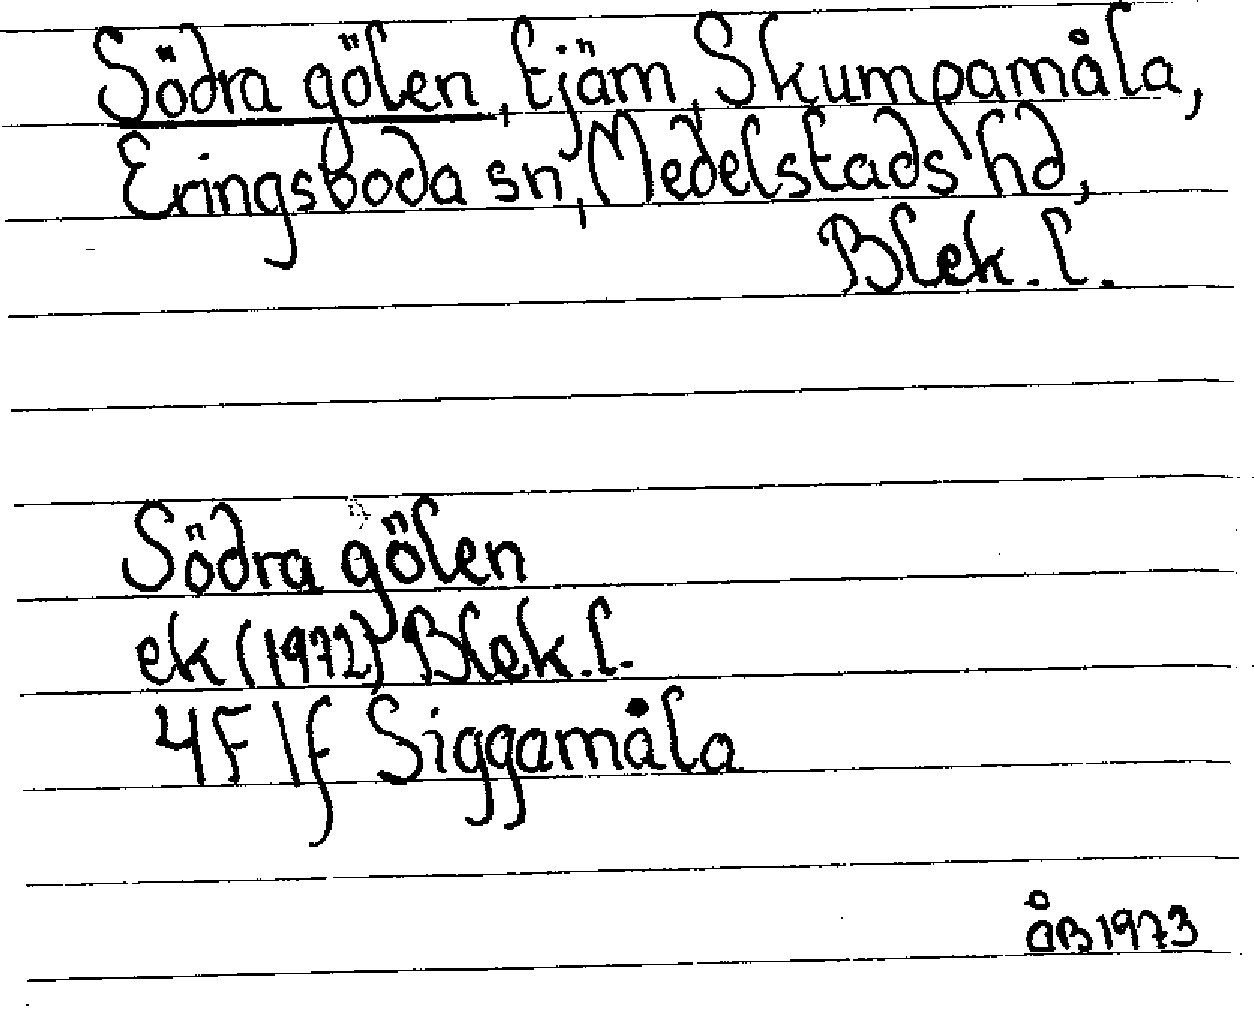 Södra gölen, tjäm, Skumpamåla,
Eringsboda sn, Medelstads hd,
Blek. l.
Södra gölen
ek (1972) Blek. l.
4F 1f Siggamåla
åB 1973